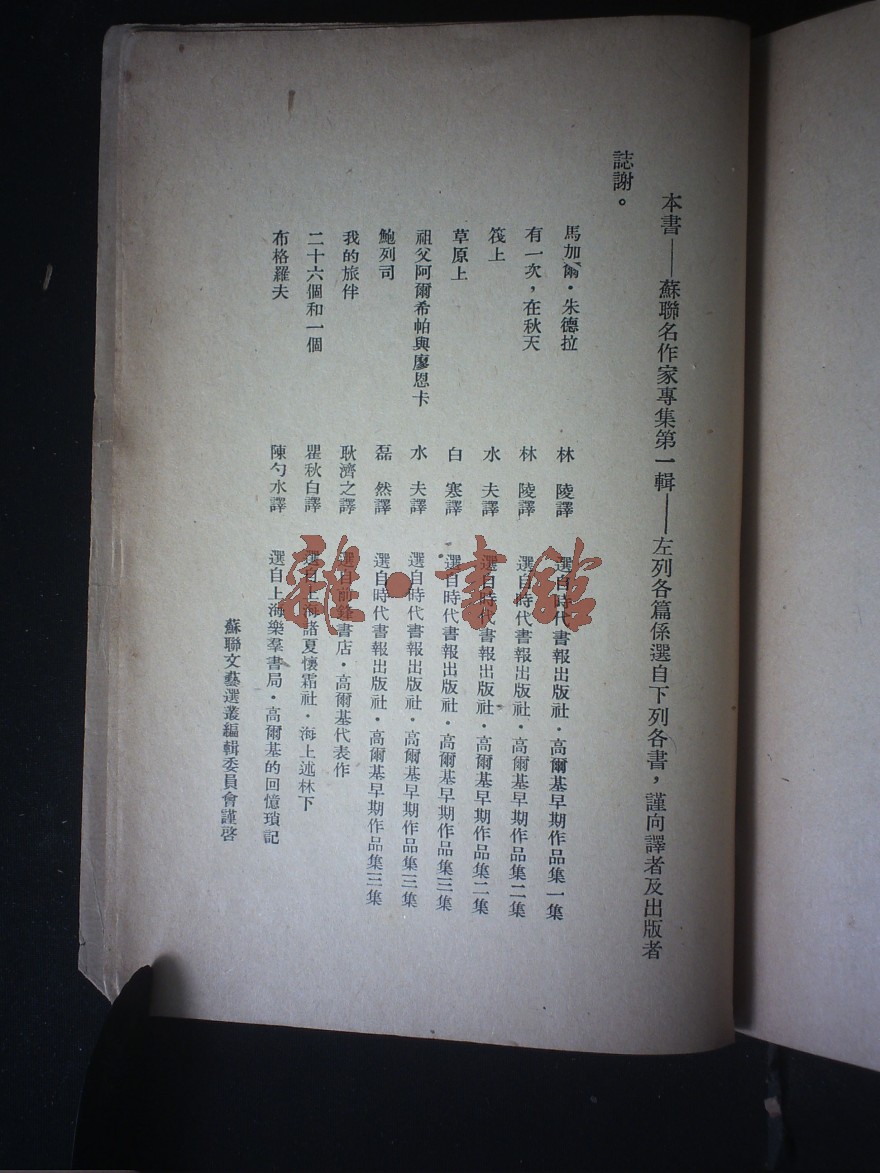 本書——蘇聯名作家專集第一輯——左列各篇係選自下列各書，謹向譯者及出版者
誌謝。
馬加爾・朱德拉　林　陵譯　選自時代書報出版社・高爾基早期作品集一集
有一次，在秋天　林　陵譯　選自時代書報出版社・高爾基早期作品集二集
筏上　水　夫譯　選自時代書報出版社・高爾基早期作品集二集
草原上　白　寒譯　選自時代書報出版社・高爾基早期作品集三集
祖父阿爾希帕與廖恩卡　水　夫譯　選自時代書報出版社・高爾基早期作品集三集
鮑列司　磊　然譯　選自時代書報出版社・高爾基早期作品集三集
我的旅伴　耿濟之譯　選自前鋒書店・高爾基代表作
二十六個和一個　瞿秋白譯　選自上海諸夏懷霜社・海上述林下
布格羅夫　陳勺水譯　選自上海樂羣書局・高爾基的回憶瑣記
蘇聯文藝選叢編輯委員會謹啓
雜・書館